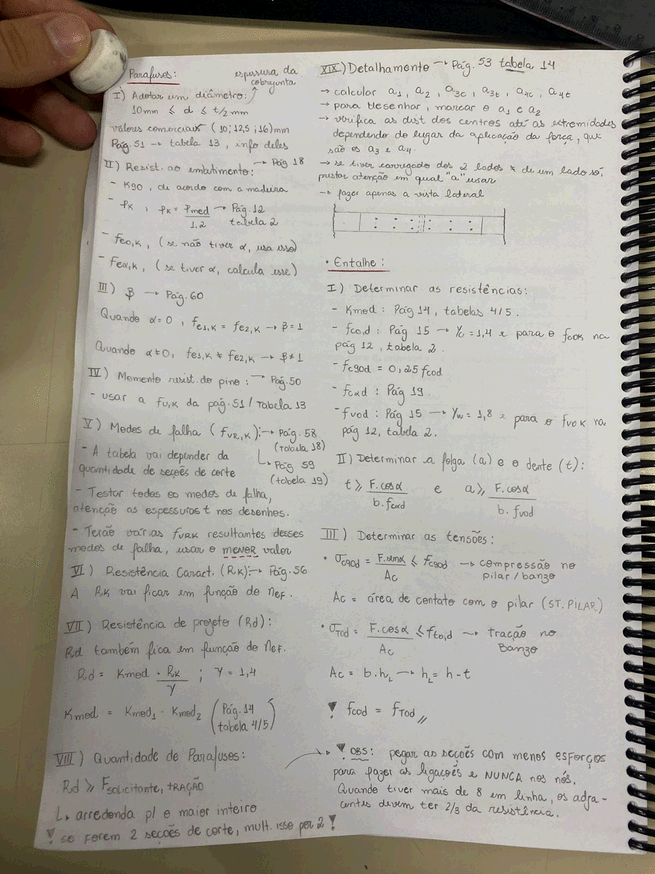 Parafusos:
espessura da
cobrejunta
I) Adotar um diâmetro:
10mm ≤ d ≤ t/2 mm
valores comerciais (10; 12,5; 16) mm
Pág 51 → tabela 13, info deles
II) Resist. ao embutimento: → Pág 18
- Kgo, de acordo com a madeira
- ρk, ρk = ρmed/1,2 → Pág. 12 tabela 2
- feo,k, (se não tiver α, usa esse)
- feα,k, (se tiver α, calcula esse)
III) β → Pág. 60
Quando α=0, fe1,k = fe2,k → β=1
Quando α≠0, fe1,k ≠ fe2,k → β≠1
IV) Momento resist. do pino: → Pág. 50
- usar a fu,k da pág. 51 / Tabela 13
V) Modos de falha (fvR,k): → Pág. 58
(Tabela 18)
- A tabela vai depender da
↳ Pág 59
quantidade de seções de corte
(tabela 19)
- Testar todos os modos de falha,
atenção as espessuras t nos desenhos.
- Terão várias fvRk resultantes desses
modos de falha, usar o menor valor
VI) Resistência Caract. (Rk): → Pág. 56
A Rk vai ficar em função do nef.
VII) Resistência de projeto (Rd):
Rd também fica em função do nef.
Rd = Kmod · Rk/γ ; γ = 1,4
Kmod = Kmod1 · Kmod2 (Pág. 14 tabela 4/5)
VIII) Quantidade de Parafusos:
Rd ≥ Fsolicitante, tração
↳ arredonda p/ o maior inteiro
! se forem 2 seções de corte, mult. isso por 2 !
XIX) Detalhamento → Pág. 53 tabela 14
→ calcular a1, a2, a3c, a3t, a4c, a4t
→ para desenhar, marcar o a1 e a2
→ verifica as dist dos centros até as extremidades
dependendo do lugar da aplicação da força, que
são os a3 e a4.
→ se tiver carregado dos 2 lados ≠ de um lado só,
prestar atenção em qual "a" usar
→ fazer apenas a vista lateral
• Entalhe:
I) Determinar as resistências:
- Kmod: Pág 14, tabelas 4/5.
- fco,d: Pág 15 → γc = 1,4 e para o fcok na
pág 12, tabela 2.
- fc90d = 0,25 fcod
- fcαd: Pág 19.
- fvod: Pág 15 → γw = 1,8 e para o fvok na
pág 12, tabela 2.
II) Determinar a folga (a) e o dente (t):
t ≥ F.cosα/b.fcαd e a ≥ F.cosα/b.fvod
III) Determinar as tensões:
• σc90d = F.senα/Ac ≤ fc90d → compressão no
pilar/banzo
Ac = área de contato com o pilar (ST. PILAR)
• σtod = F.cosα/Ac ≤ fto,d → tração no
Banzo
Ac = b.hL → hL = h-t
! fcod = fTod //
! OBS: pegar as seções com menos esforços
para fazer as ligações e NUNCA nos nós.
Quando tiver mais de 8 em linha, os adja-
centes devem ter 2/3 da resistência.